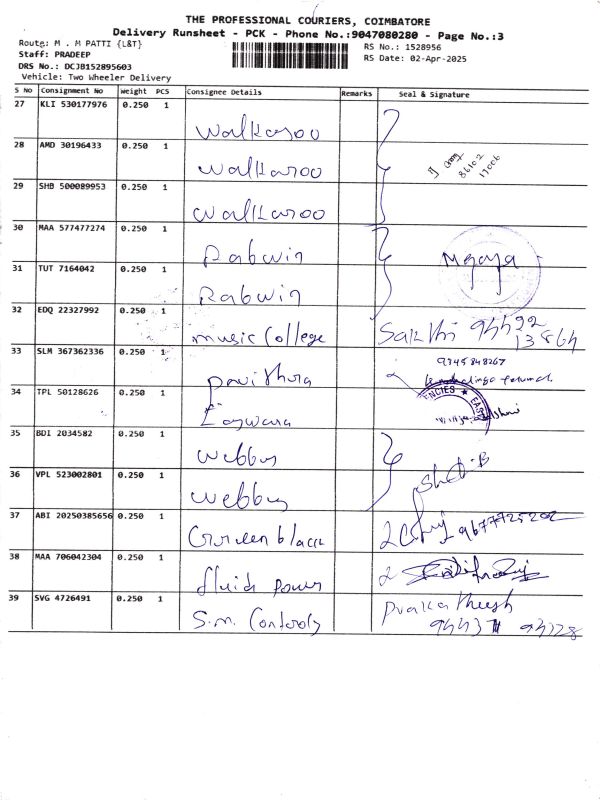 THE PROFESSIONAL COURIERS, COIMBATORE
Delivery Runsheet - PCK - Phone No.:9047080280 - Page No.:3
Route: M . M PATTI {L&T}
RS No.: 1528956
Staff: PRADEEP
RS Date: 02-Apr-2025
DRS No.: DCJB152895603
Vehicle: Two Wheeler Delivery
S No Consignment No Weight PCS Consignee Details Remarks Seal & Signature
27 KLI 530177976 0.250 1 Walkaroo
28 AMD 30196433 0.250 1 Walkaroo
29 SHB 500089953 0.250 1 Walkaroo
30 MAA 577477274 0.250 1 Rabwin
31 TUT 7164042 0.250 1 Rabwin
32 EDQ 22327992 0.250 1 music College Sakthi
33 SLM 367362336 0.250 1 Pavithra
34 TPL 50128626 0.250 1 Easwara
35 BDI 2034582 0.250 1 Webbus
36 VPL 523002801 0.250 1 Webbus
37 ABI 20250385656 0.250 1 Green black 9677725202
38 MAA 706042304 0.250 1 fluid power
39 SVG 4726491 0.250 1 S.m. Controls